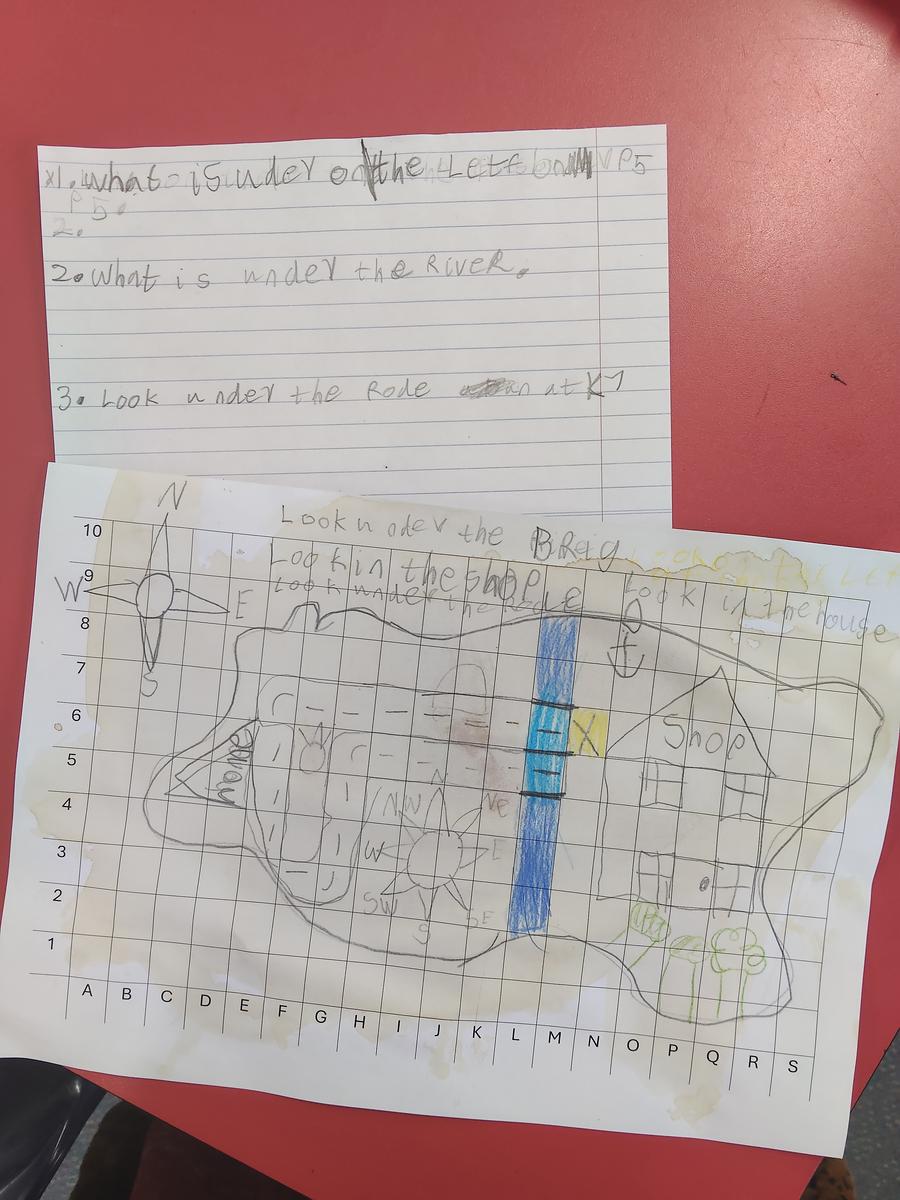 1. What is under on the Left P5
P 5.
2.
2. What is under the RiveR.
3. Look under the Rode an at K7
N
W
E
S
Look under the BReig
Look in the shop
Look under the Rode
Look in the house
10
9
8
7
6
5
4
3
2
1
X
Shop
away
N
NW
NE
W
E
SW
SE
S
A B C D E F G H I J K L M N O P Q R S